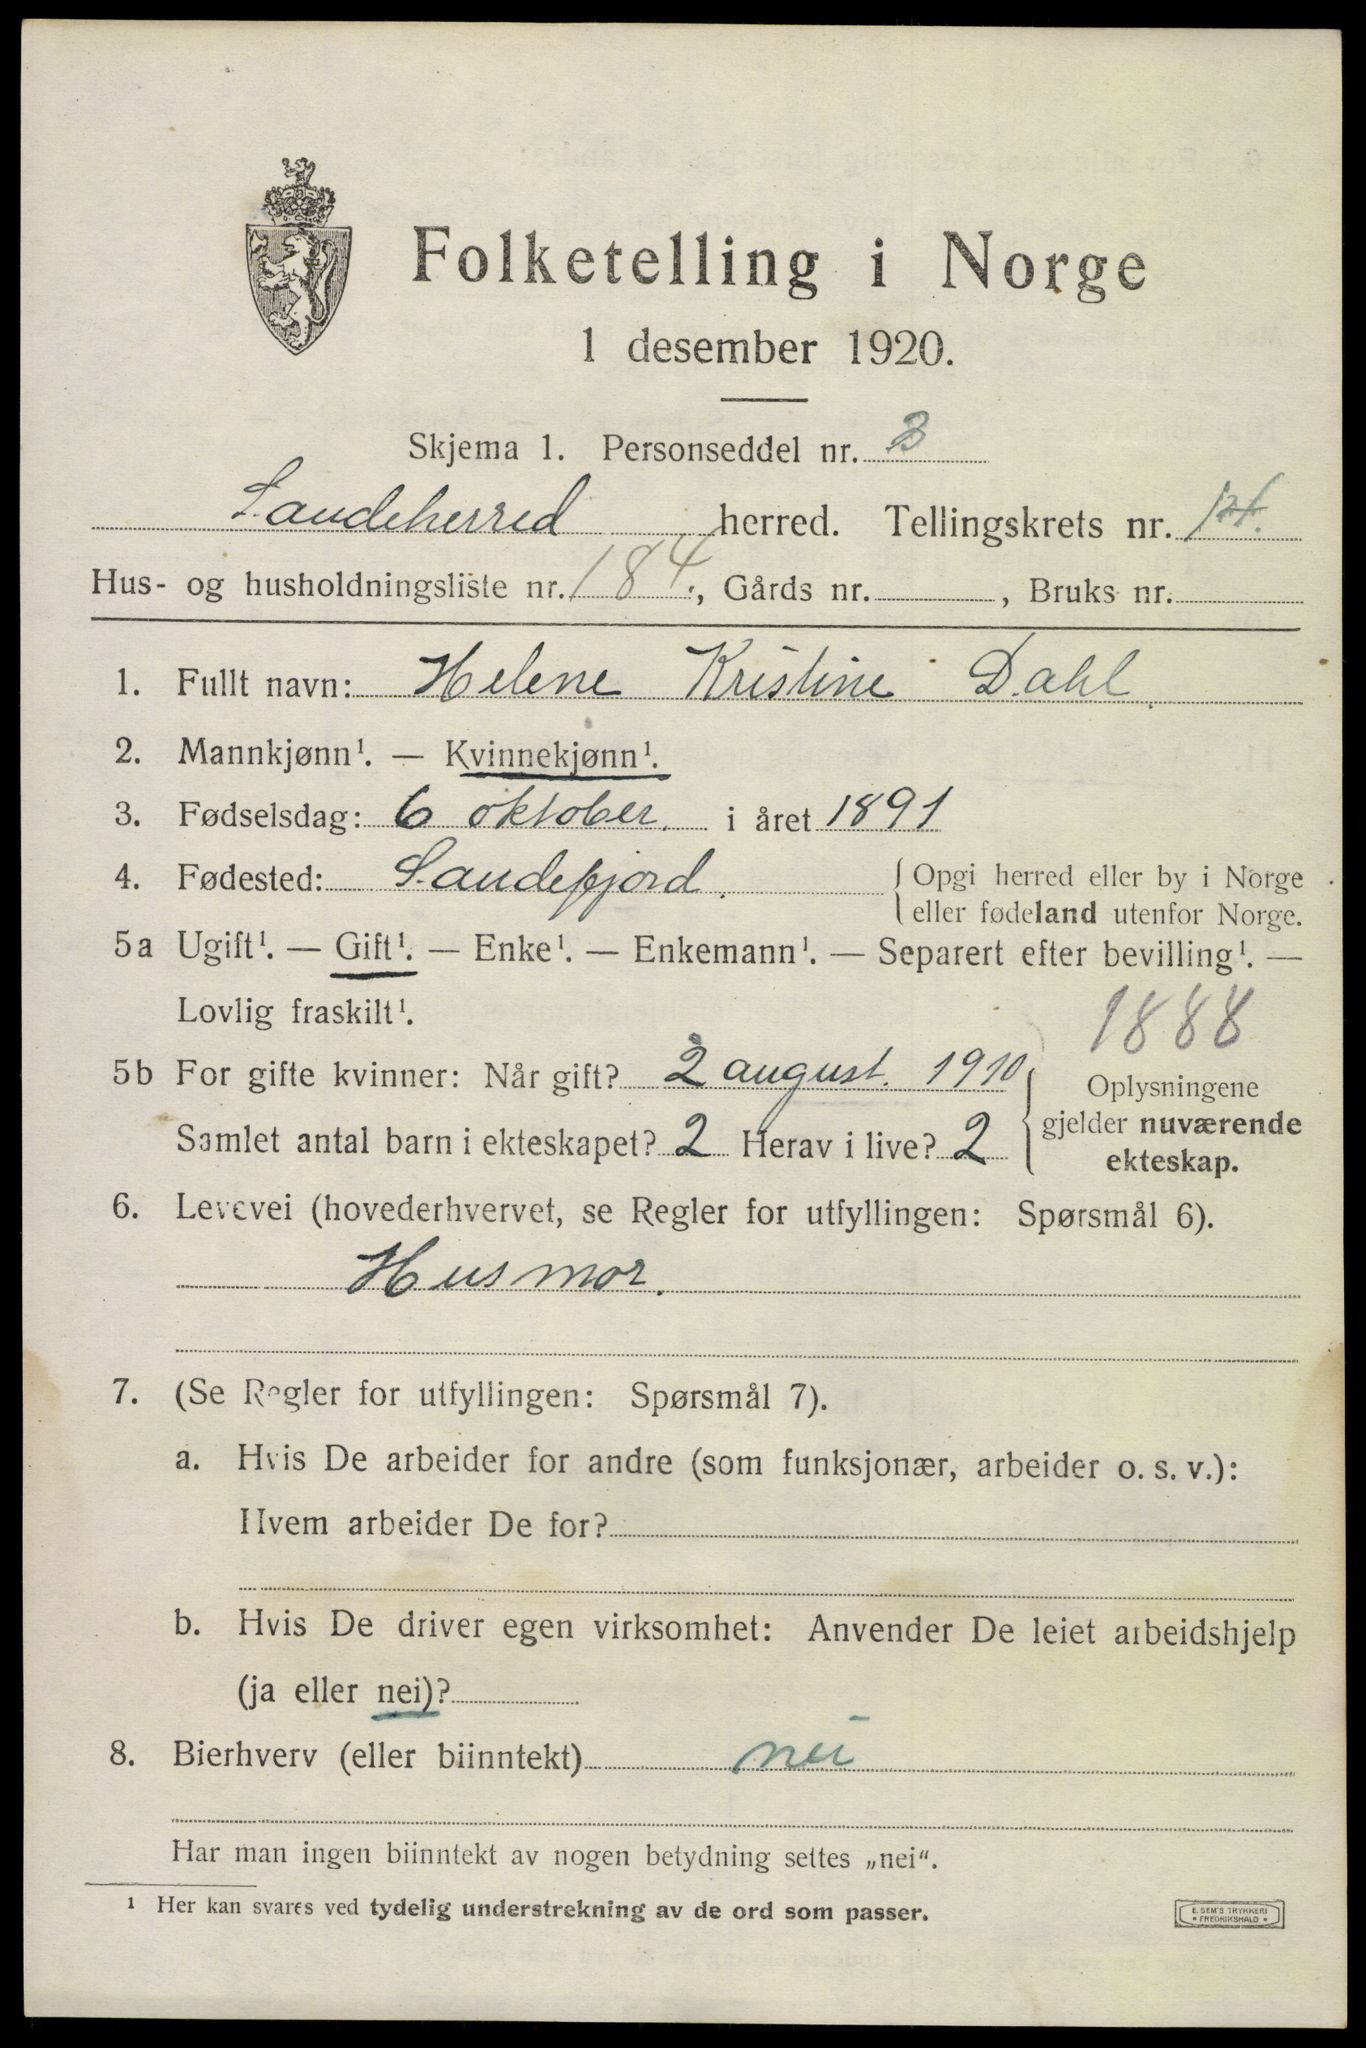 Folketelling i Norge
1 desember 1920.
Skjema 1. Personseddel nr. 3
Sandeherred herred. Tellingskrets nr. 14.
Hus- og husholdningsliste nr. 184., Gårds nr. , Bruks nr.
1. Fullt navn: Helene Kristine Dahl.
2. Mannkjønn¹. — Kvinnekjønn¹.
3. Fødselsdag: 6 oktober. i året 1891
4. Fødested: Sandefjord. { Opgi herred eller by i Norge
eller fødeland utenfor Norge.
5a Ugift¹. — Gift¹. — Enke¹. — Enkemann¹. — Separert efter bevilling¹. —
Lovlig fraskilt¹.
1888
5b For gifte kvinner: Når gift? 2 august. 1910 { Oplysningene
gjelder nuværende
Samlet antal barn i ekteskapet? 2 Herav i live? 2
ekteskap.
6. Levevei (hovederhvervet, se Regler for utfyllingen: Spørsmål 6).
Husmor.
7. (Se Regler for utfyllingen: Spørsmål 7).
a. Hvis De arbeider for andre (som funksjonær, arbeider o. s. v.):
Hvem arbeider De for?
b. Hvis De driver egen virksomhet: Anvender De leiet arbeidshjelp
(ja eller nei)?
8. Bierhverv (eller biinntekt) nei
Har man ingen biinntekt av nogen betydning settes „nei".
¹ Her kan svares ved tydelig understrekning av de ord som passer.
E. SEM'S TRYKKERI
* FREDRIKSHALD *